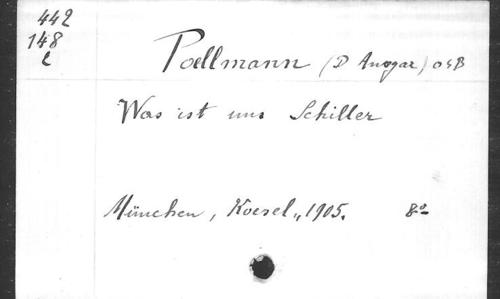 442
148
c
Poellmann (P Ansgar) OSB
Was ist uns Schiller
München, Koesel, 1905. 8°